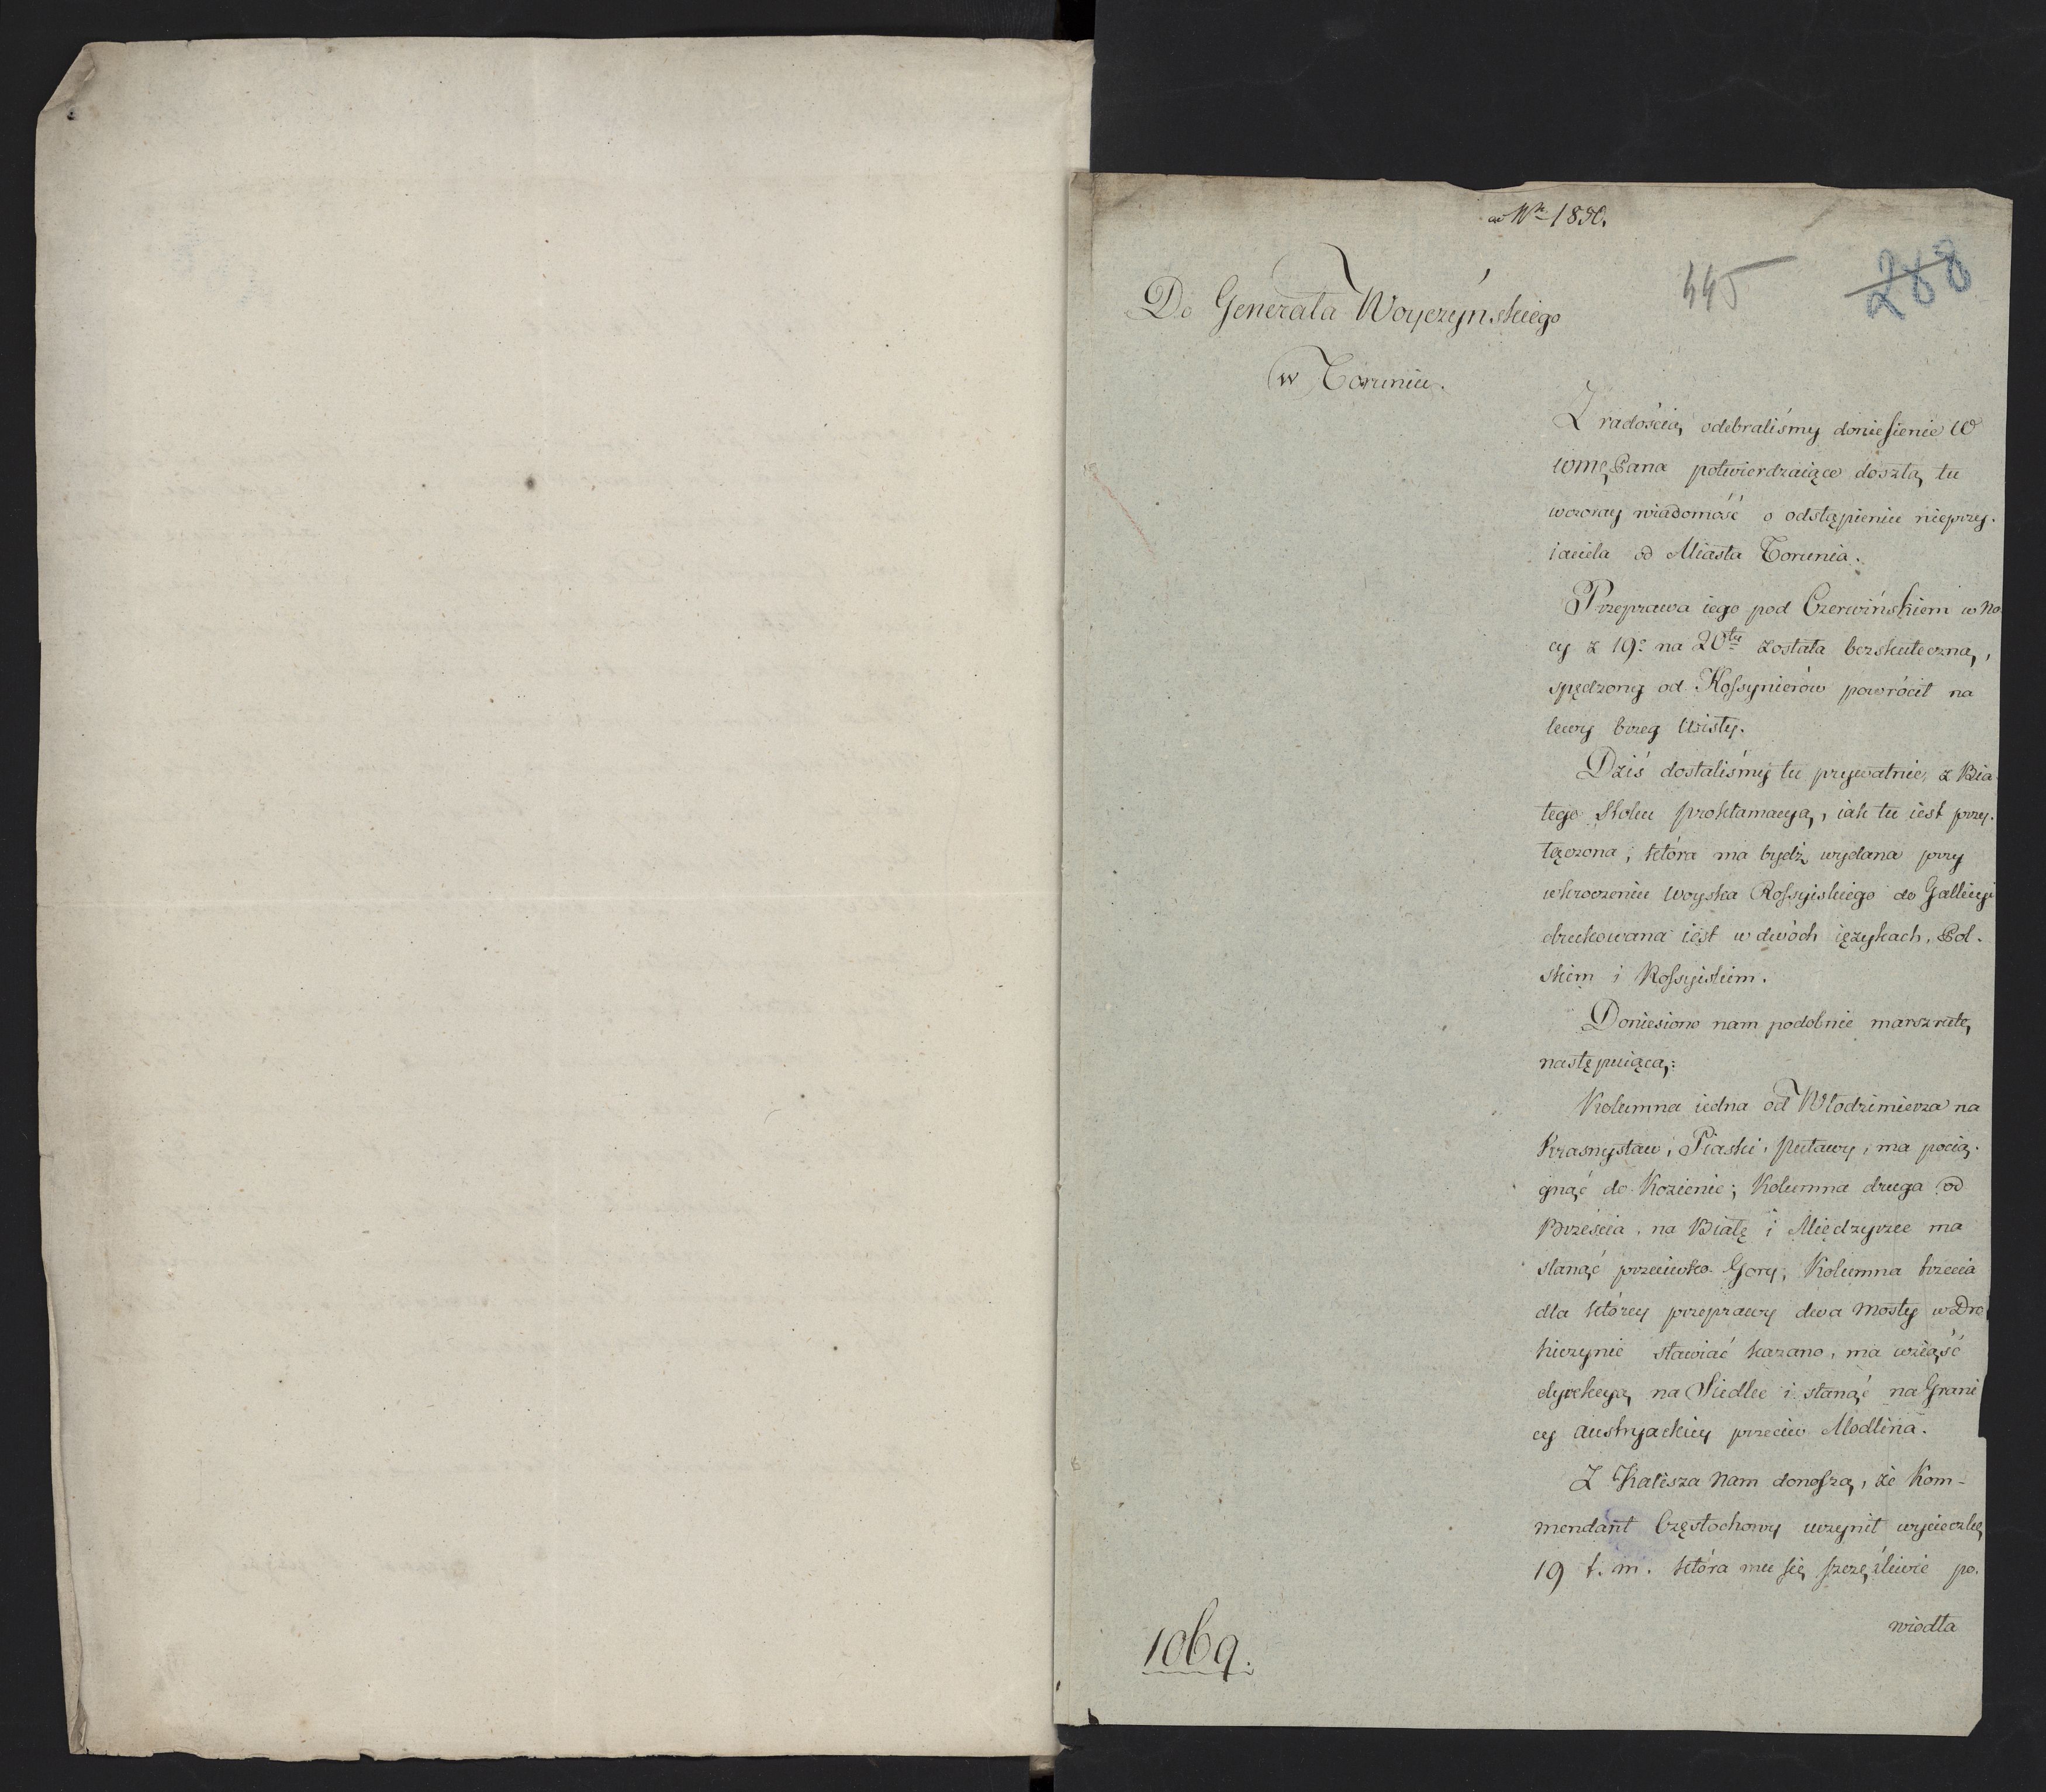 ad Nr 1850.
445
288
Do Generała Woyczyńskiego
w Toruniu.
Z radością odebraliśmy doniesienie W
WMę Pana potwierdzaiące doszłą tu
wczoray wiadomość o odstąpieniu nieprzy.
iaciela od Miasta Torunia.
Przeprawa iego pod Czerwińskiem w no
cy z 19º na 20tu została bezskuteczną,
spędzony od Kossynierów powrócił na
lewy brzeg Wisły.
Dziś dostaliśmy tu prywatnie, z Bia
łego Stoku proklamacyą, iak tu iest przy.
łączona, która ma bydź wydana przy
wkroczeniu woyska Rossyiskiego do Gallicyi
drukowana iest w dwóch ięzykach, Pol.
skim i Rossyiskim.
Doniesiono nam podobnie marszrutę,
następuiącą:
Kolumna iedna od Włodzimierza na
Krasnystaw, Piaski, Puławy, ma pocią.
gnąć do Kozienic; Kolumna druga od
Brześcia, na Białę i Międzyrzec ma
stanąć przeciwko Gory; Kolumna trzecia
dla którey przeprawy dwa Mosty w Dro
hiczynie stawiać kazano, ma wziąść
dyrekcyą na Siedlce i stanąć na Grani
cy Austryackiey przeciw Modlina.
Z Kalisza nam donoszą, że Kom-
mendant Częstochowy uczynił wycieczkę
19 t. m. która mu się szczęśliwie po.
wiodła
1069.